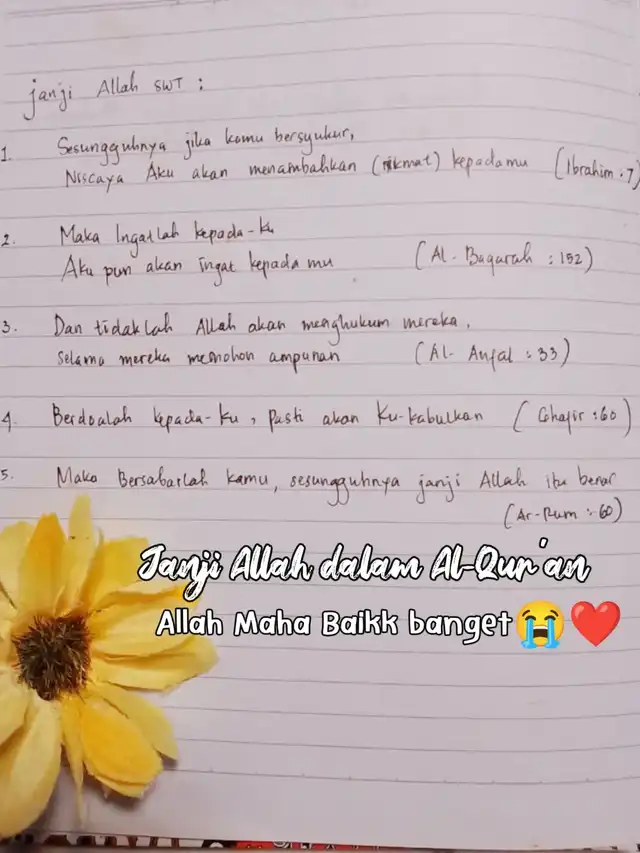 janji Allah SWT :
1. Sesungguhnya jika kamu bersyukur,
Niscaya Aku akan menambahkan (nikmat) kepadamu (Ibrahim : 7)
2. Maka Ingatlah kepada-Ku
Aku pun akan ingat kepada mu (Al-Baqarah : 152)
3. Dan tidaklah Allah akan menghukum mereka,
selama mereka memohon ampunan (Al-Anfal : 33)
4. Berdoalah kepada-Ku, pasti akan Ku-kabulkan (Ghafir : 60)
5. Maka Bersabarlah kamu, sesungguhnya janji Allah itu benar
(Ar-Rum : 60)
Janji Allah dalam Al-Qur'an
Allah Maha Baikk banget😭❤️